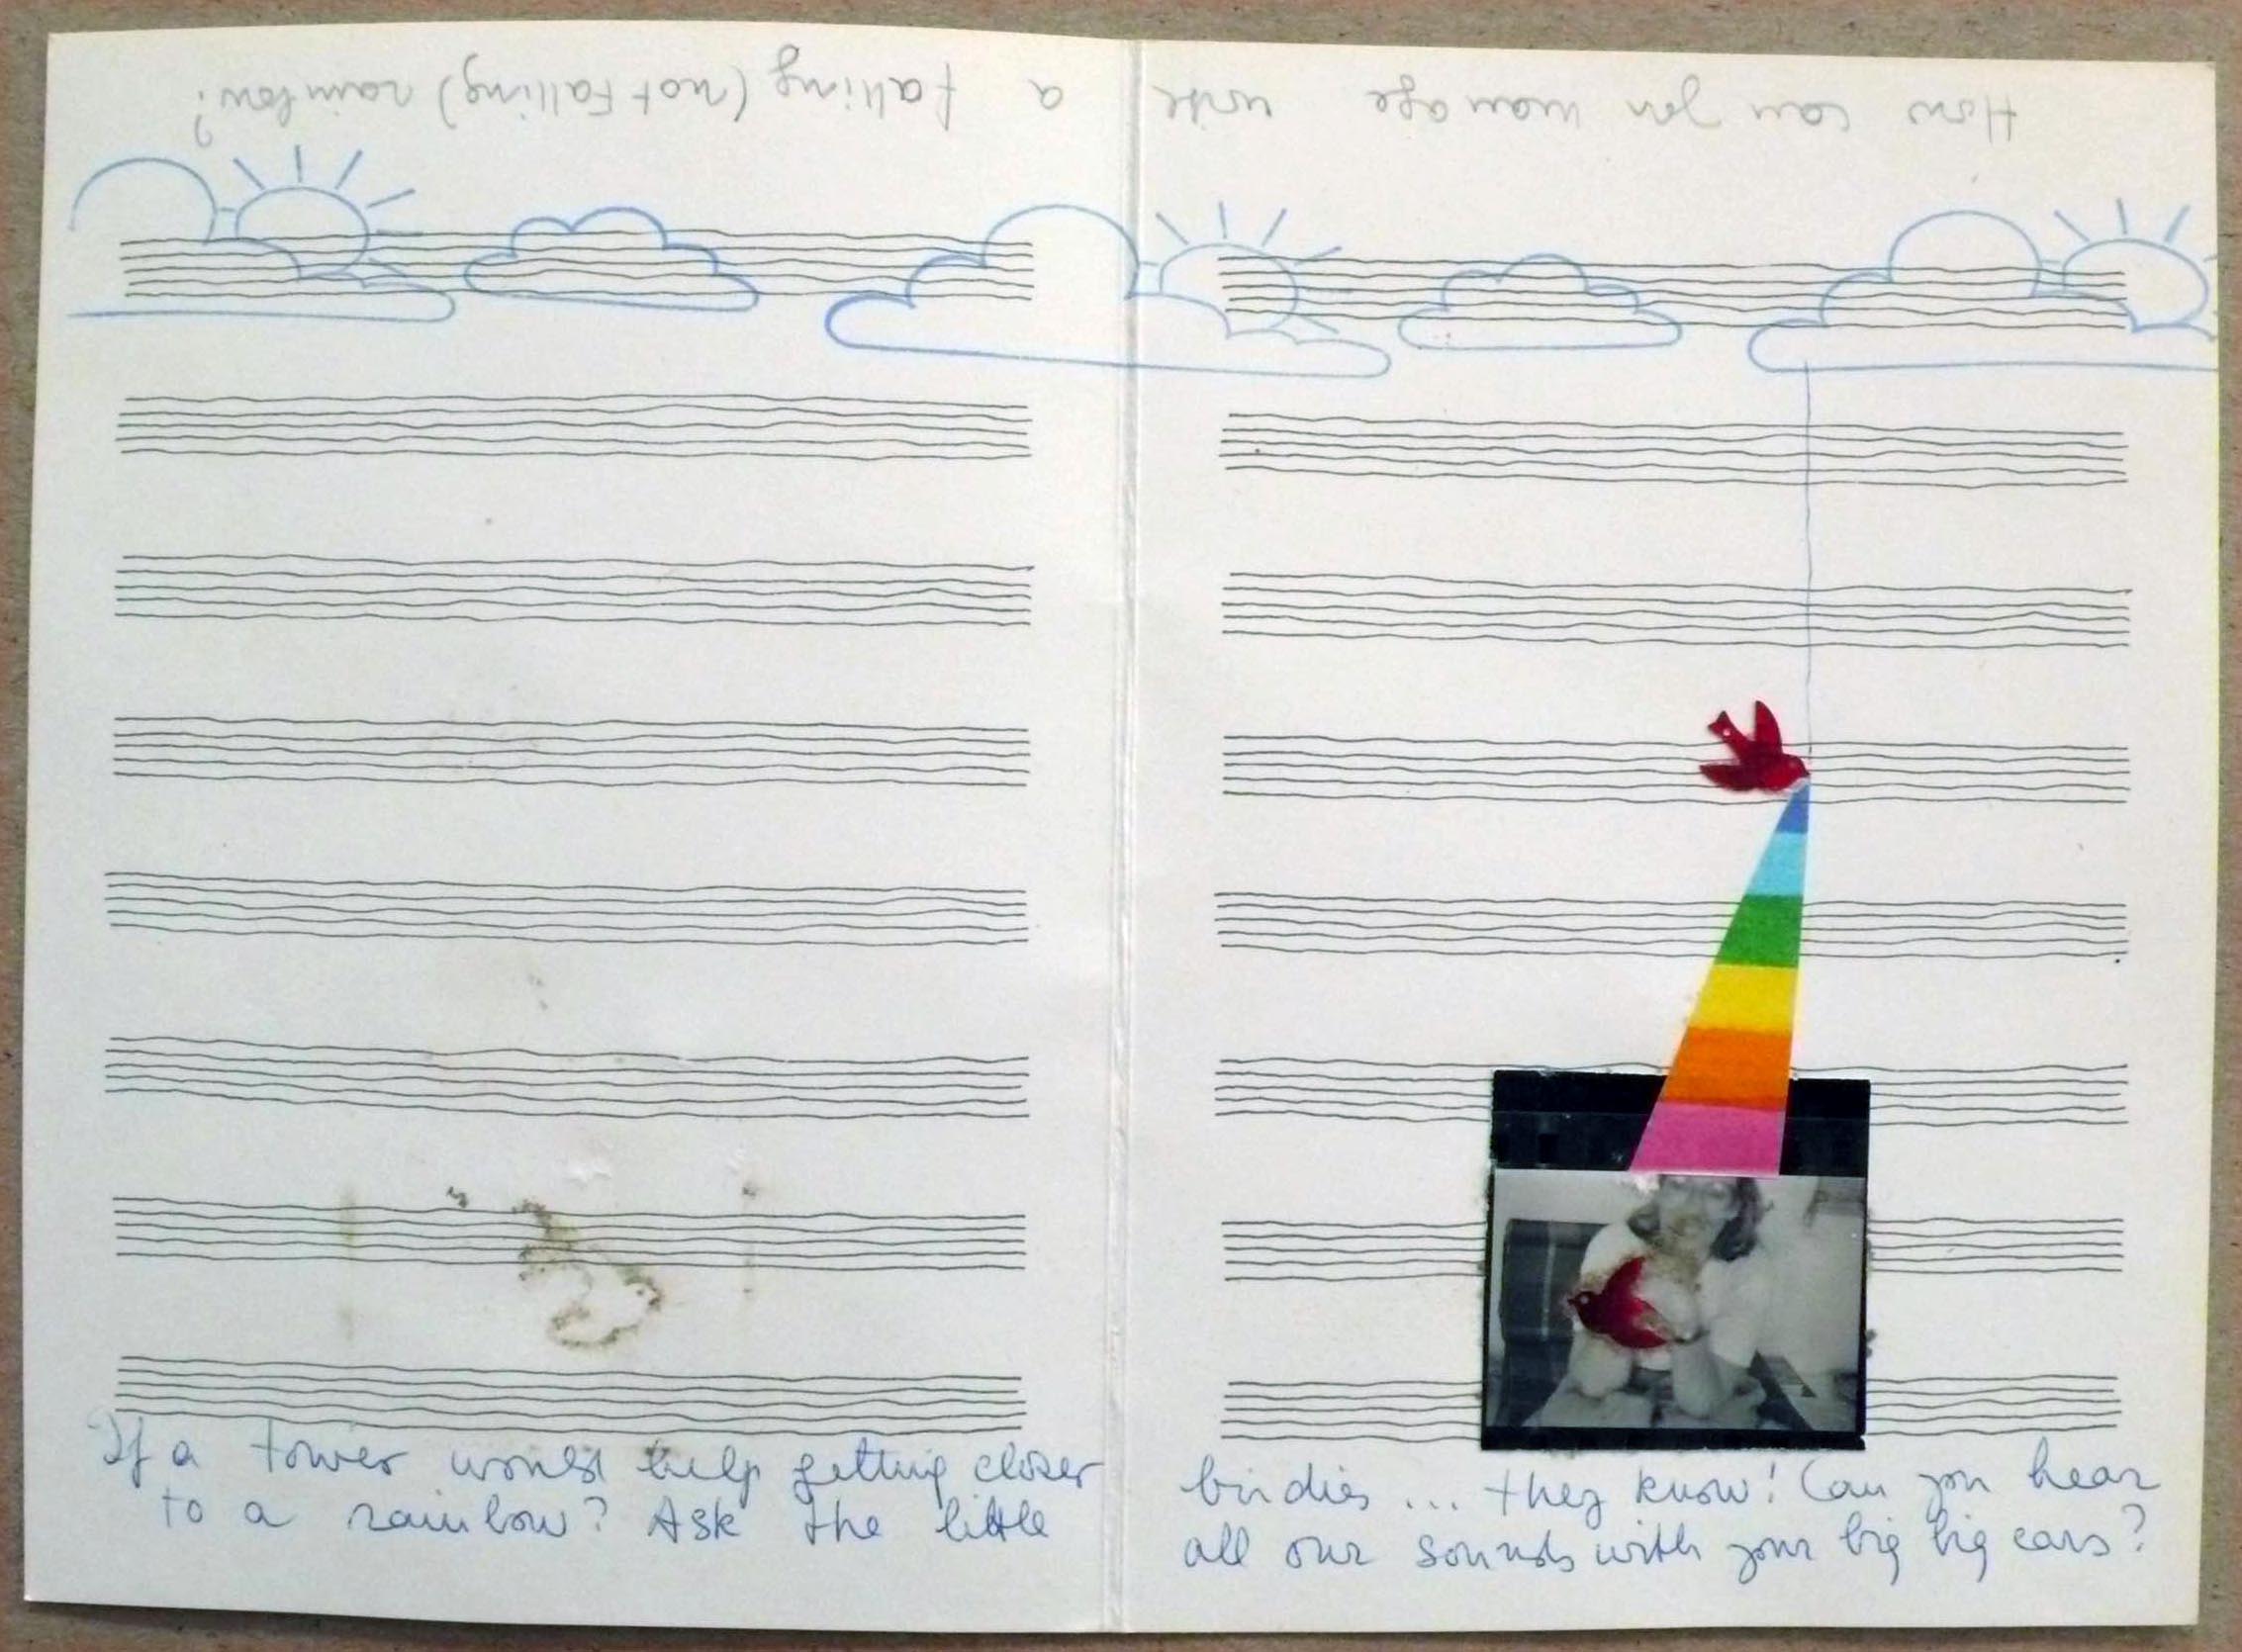 How can you manage with a falling (not Falling) rainbow?
If a tower would help getting closer
to a rainbow? Ask the little
birdies ... they know! Can you hear
all our sounds with your big big ears?